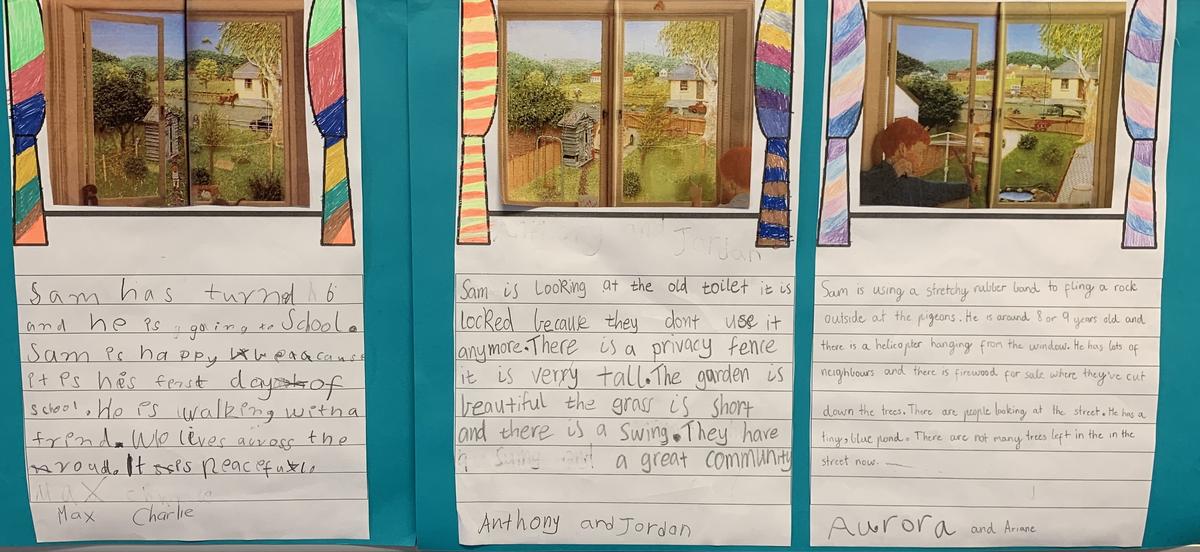 Sam has turnd 6
and he is going to School.
Sam is happy beacause
it is his ferst day of
school. He is walking witha
frend. Wo lives across the
roud. It is peaceful.
Max Charlie
Anthony and Jordan
Sam is LooKing at the old toilet it is
locKed because they dont use it
anymore. There is a privacy fence
it is verry tall. The garden is
beautiful the grass is short
and there is a Swing. They have
a great community
Anthony and Jordan
Sam is using a stretchy rubber band to fling a rock
outside at the pigeons. He is around 8 or 9 years old and
there is a helicopter hanging from the window. He has lots of
neighbours and there is firewood for sale where they've cut
down the trees. There are people looking at the street. He has a
tiny, blue pond. There are not many trees left in the in the
street now.
Aurora and Ariane